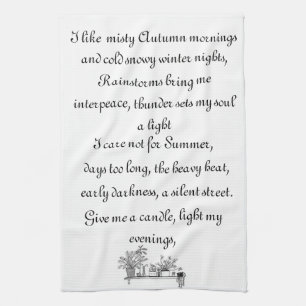 I like misty Autumn mornings
and cold snowy winter nights,
Rainstorms bring me
interpeace, thunder sets my soul
a light
I care not for Summer,
days too long, the heavy heat,
early darkness, a silent street.
Give me a candle, light my
evenings,